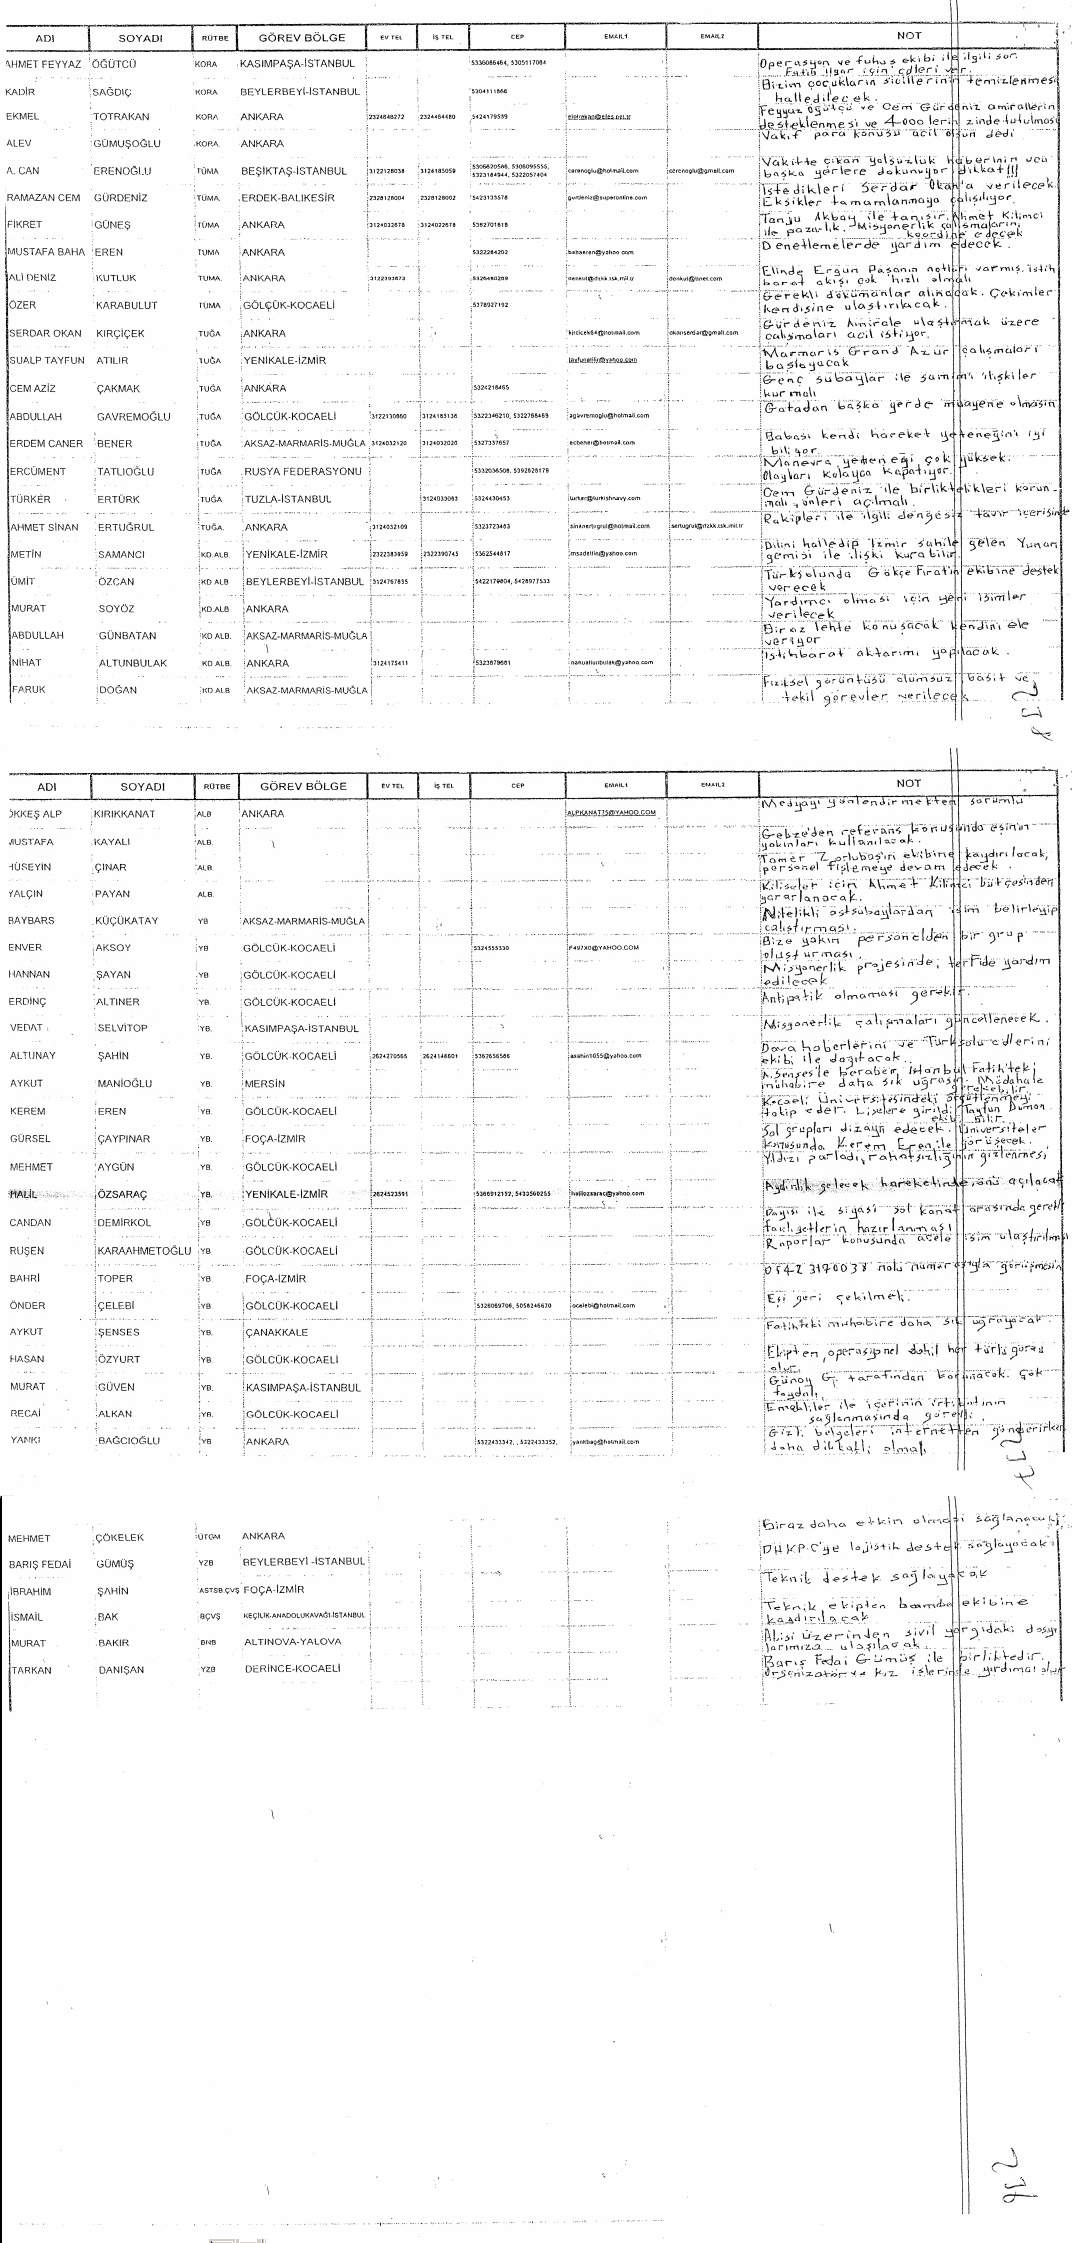 ADI SOYADI RÜTBE GÖREV BÖLGE EV TEL İŞ TEL CEP EMAIL1 EMAIL2 NOT
AHMET FEYYAZ ÖĞÜTCÜ KORA KASIMPAŞA-İSTANBUL Operasyon ve fuhuş ekibi ile ilgili sor.
için cdleri ver.
KADİR SAĞDIÇ KORA BEYLERBEYİ-İSTANBUL 5304111866 Bizim çocukların sicillerinin temizlenmesi
halledilecek.
EKMEL TOTRAKAN KORA ANKARA 2324848272 2324464480 5424179539 Feyyaz Öğütçü ve Cem Gürdeniz amirallerin
desteklenmesi ve 4000 lerin zinde tutulması
ALEV GÜMUŞOĞLU KORA ANKARA Vakıf para konusu acil olsun dedi
A. CAN ERENOĞLU TÜMA BEŞİKTAŞ-İSTANBUL 3122128038 3124185059 cerenoglu@hotmail.com cerenoglu@gmail.com Vakitte çıkan yolsuzluk haberinin ucu
başka yerlere dokunuyor dikkat!!!
RAMAZAN CEM GÜRDENİZ TÜMA ERDEK-BALIKESİR 2328128004 2328128002 5423133578 gurdeniz@superonline.com İstedikleri Serdar Okan'a verilecek.
Eksikler tamamlanmaya çalışılıyor.
FİKRET GÜNEŞ TÜMA ANKARA 3124032678 3124022678 5382701618 Tanju Akbay ile tanışır. Ahmet Kilimci
ile pazarlık. Misyonerlik çalışmalarını
koordine edecek
MUSTAFA BAHA EREN TUMA ANKARA 5322284202 bahaeren@yahoo.com Denetlemelerde yardım edecek.
ALİ DENİZ KUTLUK TÜMA ANKARA 3122393673 5326480289 denkut@dzkk.tsk.mil.tr denkut@ttnet.com Elinde Ergun Paşanın notları varmış. istih
barat akışı çok hızlı olmalı
ÖZER KARABULUT TÜMA GÖLÇÜK-KOCAELİ 5378927192 Gerekli dökümanlar alınacak. Çekimler
kendisine ulaştırılacak.
SERDAR OKAN KIRÇİÇEK TUĞA ANKARA kircicek64@hotmail.com okanserdar@gmail.com Gürdeniz Amirale ulaştırmak üzere
çalışmaları acil istiyor.
SUALP TAYFUN ATILIR TUĞA YENİKALE-İZMİR Marmaris Grand Azur çalışmaları
başlayacak
CEM AZİZ ÇAKMAK TUĞA ANKARA 5324218465 Genç subaylar ile samimi ilişkiler
kurmalı
ABDULLAH GAVREMOĞLU TUĞA GÖLCÜK-KOCAELİ 3122130860 3124185136 5322346210, 5322768469 agavremoglu@hotmail.com Gatadan başka yerde muayene olmasın
ERDEM CANER BENER TUĞA AKSAZ-MARMARİS-MUĞLA 3124032120 3124032020 5327337657 ecbener@hotmail.com Babası kendi hareket yeteneğini iyi
biliyor.
ERCÜMENT TATLIOĞLU TUĞA RUSYA FEDERASYONU 5332036508, 5392828178 Manevra yeteneği çok yüksek.
Olayları kolayca kapatıyor.
TÜRKER ERTÜRK TUĞA TUZLA-İSTANBUL 3124033083 5324430453 turker@turkishnavy.com Cem Gürdeniz ile birliktelikleri korun-
malı, önleri açılmalı
AHMET SİNAN ERTUĞRUL TUĞA ANKARA 3124032109 5323723463 sinanertugrul@hotmail.com sertugrul@dzkk.tsk.mil.tr Rakipleri ile ilgili dengesiz tavır içerisinde
METİN SAMANCI KD.ALB. YENİKALE-İZMİR 2322383959 2322390745 5362544817 Dilini halledip İzmir sahile gelen Yunan
gemisi ile ilişki kurabilir.
ÜMİT ÖZCAN KD ALB BEYLERBEYİ-İSTANBUL 3124767835 5422179804, 5428977533 Türksolunda Gökçe Fıratın ekibine destek
verecek
MURAT SOYÖZ KD.ALB ANKARA Yardımcı olması için yeni isimler
verilecek
ABDULLAH GÜNBATAN KD ALB. AKSAZ-MARMARİS-MUĞLA Biraz lehte konuşacak kendini ele
veriyor
NİHAT ALTUNBULAK KD ALB. ANKARA 3124175411 5323879681 nahualtunbulak@yahoo.com İstihbarat aktarımı yapılacak.
FARUK DOĞAN KD ALB AKSAZ-MARMARİS-MUĞLA Fiziksel görüntüsü olumsuz basit ve
tekil görevler verilecek
ADI SOYADI RÜTBE GÖREV BÖLGE EV TEL İŞ TEL CEP EMAIL1 EMAIL2 NOT
ÖKKEŞ ALP KIRIKKANAT ALB ANKARA ALPKANAT75@YAHOO.COM Medyayı yönlendirmekten sorumlu
MUSTAFA KAYALI ALB. Gebze'den referans konusunda eşinin
yakınları kullanılacak.
HÜSEYİN ÇINAR ALB. Tamer Zorlubaş'ın ekibine kaydırılacak,
personel fişlemeye devam edecek.
YALÇIN PAYAN ALB. Kiliseler için Ahmet Kilimci bütçesinden
yararlanacak.
BAYBARS KÜÇÜKATAY YB AKSAZ-MARMARİS-MUĞLA Nitelikli astsubaylardan isim belirleyip
çalıştırması.
ENVER AKSOY YB GÖLCÜK-KOCAELİ 5324555330 F497X0@YAHOO.COM Bize yakın personelden bir grup
oluşturması.
HANNAN ŞAYAN YB GÖLCÜK-KOCAELİ Misyonerlik projesinde, terfide yardım
edilecek
ERDİNÇ ALTINER YB. GÖLCÜK-KOCAELİ Antipatik olmaması gerekir.
VEDAT SELVİTOP YB. KASIMPAŞA-İSTANBUL Misyonerlik çalışmaları güncellenecek.
ALTUNAY ŞAHİN YB. GÖLCÜK-KOCAELİ 2624270565 2624146601 5362656586 asahin1055@yahoo.com Dava haberlerini ve Türksolu cdlerini
ekibi ile dağıtacak.
AYKUT MANİOĞLU YB. MERSİN A.Şenses'le beraber, İstanbul Fatih'teki
muhabire daha sık uğrasın. Müdahale
gerekebilir
KEREM EREN YB. GÖLCÜK-KOCAELİ Kocaeli Üniversitesindeki örgütlenmeyi
takip eder. Liselere girildi. Tayfun Duman
ekibi bilir.
GÜRSEL ÇAYPINAR YB. FOÇA-İZMİR Sol grupları dizayn edecek. Üniversiteler
konusunda Kerem Eren ile görüşecek.
MEHMET AYGÜN YB. GÖLCÜK-KOCAELİ Yıldızı parladı, rahatsızlığının gizlenmesi
HALİL ÖZSARAÇ YB. YENİKALE-İZMİR 2624523591 5366912192, 5433560255 halilozsarac@yahoo.com Aydınlık gelecek hareketinde önü açılacak
CANDAN DEMİRKOL YB GÖLCÜK-KOCAELİ Dayısı ile siyasi sol kanat arasında gerekli
faaliyetlerin hazırlanması
RUŞEN KARAAHMETOĞLU YB GÖLCÜK-KOCAELİ Raporlar konusunda acele isim ulaştırılması
BAHRİ TOPER YB. FOÇA-İZMİR 0542 3190038 nolu numarasıyla görüşmesin
ÖNDER ÇELEBİ YB. GÖLCÜK-KOCAELİ 5328069706, 5058246670 ocelebi@hotmail.com Eşi geri çekilmeli.
AYKUT ŞENSES YB. ÇANAKKALE Fatihteki muhabire daha sık uğrayacak
HASAN ÖZYURT YB. GÖLCÜK-KOCAELİ Ekipten, operasyonel dahil her türlü görev
alır.
MURAT GÜVEN YB. KASIMPAŞA-İSTANBUL Günay G. tarafından korunacak. çok
faydalı.
RECAİ ALKAN YB. GÖLCÜK-KOCAELİ Emekliler ile içerinin irtibatının
sağlanmasında görevli.
YANKI BAĞCIOĞLU YB ANKARA 5322433342, 5322433352, yankibag@hotmail.com Gizli belgeleri internetten gönderirken
daha dikkatli olmalı
237
MEHMET ÇÖKELEK ÜTGM ANKARA Biraz daha etkin olması sağlanacak
BARIŞ FEDAİ GÜMÜŞ YZB BEYLERBEYİ -İSTANBUL DHKPC'ye lojistik destek sağlayacak
İBRAHİM ŞAHİN ASTSB.ÇVŞ FOÇA-İZMİR Teknik destek sağlayacak
İSMAİL BAK BÇVŞ KEÇİLİK-ANADOLUKAVAĞI-İSTANBUL Teknik ekipten bomba ekibine
kaydırılacak
MURAT BAKIR BNB ALTINOVA-YALOVA Abisi üzerinden sivil yargıdaki dosya
larımıza ulaşılacak.
TARKAN DANIŞAN YZB DERİNCE-KOCAELİ Barış Fedai Gümüş ile birliktedir.
Organizatör ve kız işlerinde yardımcı olur
236